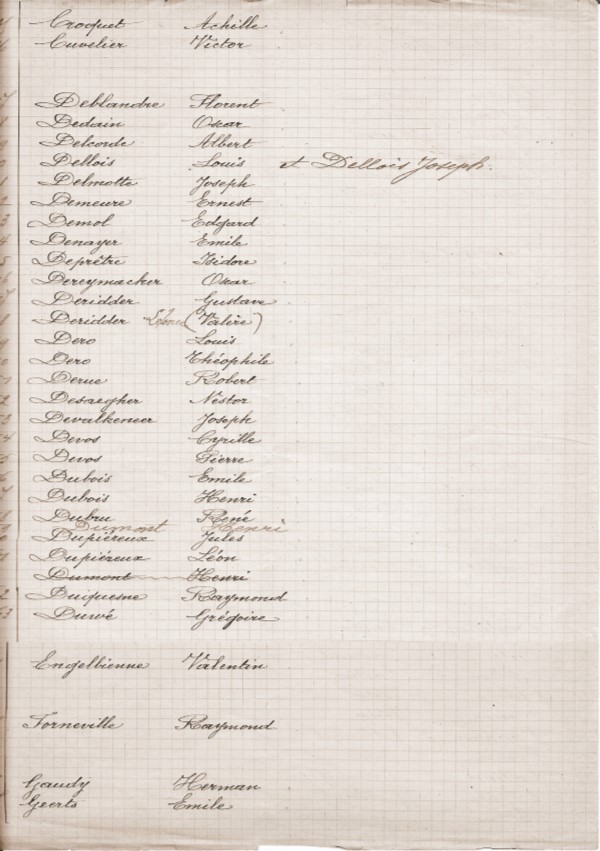 Croquet Achille
Cuvelier Victor
Deblandre Florent
Dedain Oscar
Delcorde Albert
Dellois Louis et Dellois Joseph.
Delmotte Joseph
Demeure Ernest
Demol Edgard
Denayer Emile
Deprêtre Isidore
Dereymacker Oscar
Deridder Gustave
Deridder (Valère)
Dero Louis
Dero Théophile
Derue Robert
Desaegher Nestor
Devalkeneer Joseph
Devos Cyrille
Devos Pierre
Dubois Emile
Dubois Henri
Dubru René
Dumont Henri
Dupiéreux Jules
Dupiéreux Léon
Dumont Henri
Duquesne Raymond
Duwé Grégoire
Engelbienne Valentin
Forneville Raymond
Gaudy Herman
Geerts Emile